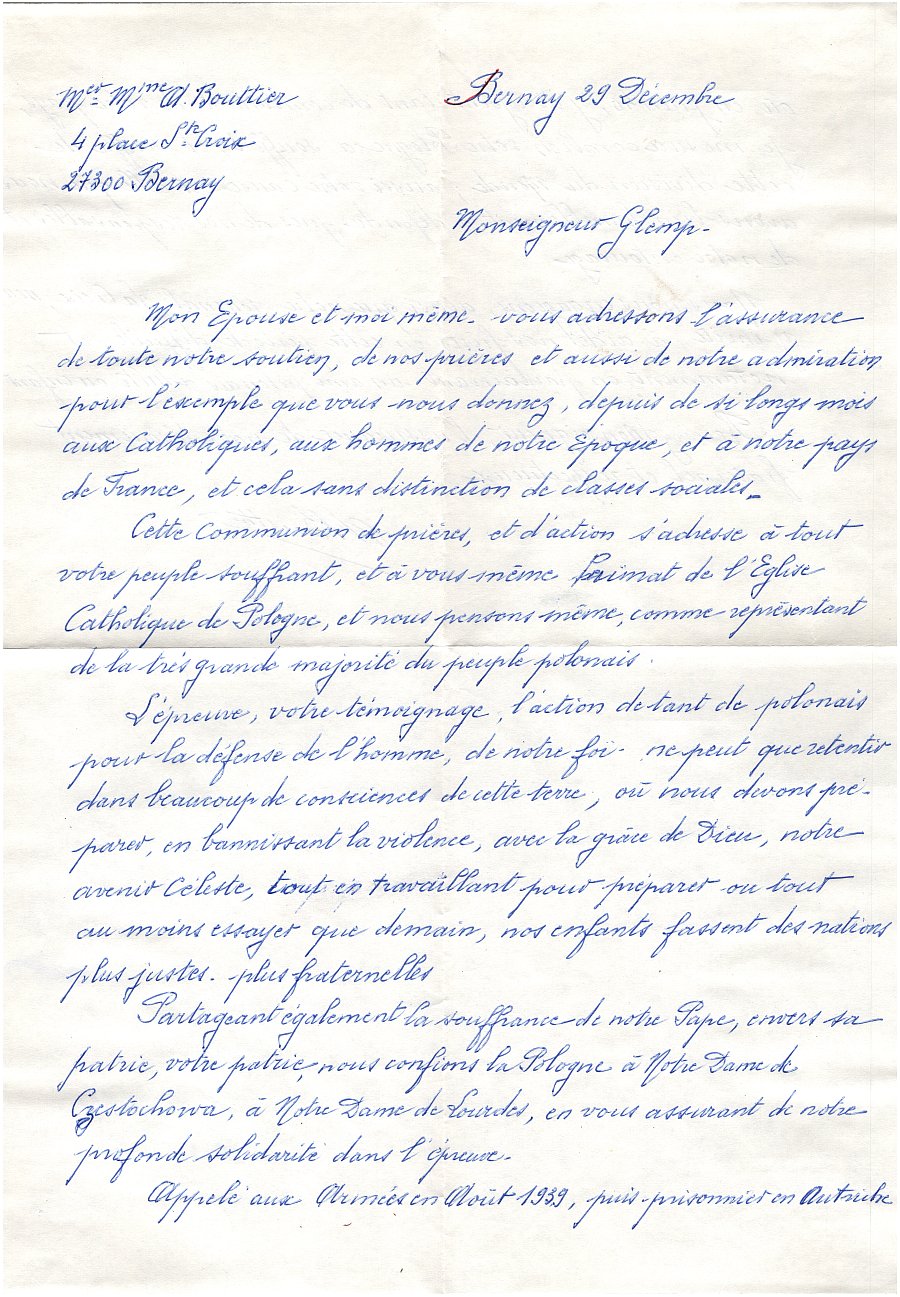 Mr et Mme A. Bouttier
4 place Ste Croix
27300 Bernay
Bernay 29 Décembre
Monseigneur Glemp.
Mon Epouse et moi même. vous adressons l'assurance
de toute notre soutien, de nos prières et aussi de notre admiration
pour l'exemple que vous nous donnez, depuis de si longs mois
aux Catholiques, aux hommes de notre Epoque, et à notre pays
de France, et cela sans distinction de classes sociales.
Cette Communion de prières, et d'action s'adresse à tout
votre peuple souffrant, et à vous même Primat de l'Eglise
Catholique de Pologne, et nous pensons même, comme représentant
de la très grande majorité du peuple polonais.
L'épreuve, votre témoignage, l'action de tant de polonais
pour la défense de l'homme, de notre foi. ne peut que retentir
dans beaucoup de consciences de cette terre, où nous devons pré-
parer, en bannissant la violence, avec la grâce de Dieu, notre
avenir Céleste, tout en travaillant pour préparer ou tout
au moins essayer que demain, nos enfants fassent des nations
plus justes. plus fraternelles
Partageant également la souffrance de notre Pape, envers sa
patrie, votre patrie, nous confions la Pologne à Notre Dame de
Czestochowa, à Notre Dame de Lourdes, en vous assurant de notre
profonde solidarité dans l'épreuve.
Appelé aux Armées en Août 1939, puis prisonnier en Autriche